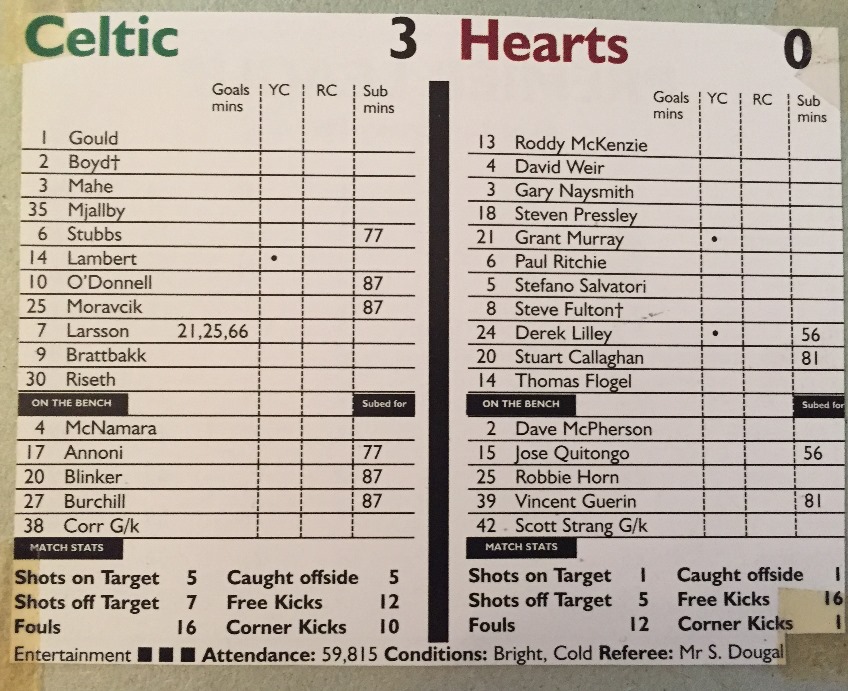 Celtic 3
Goals mins YC RC Sub mins
1 Gould
2 Boyd†
3 Mahe
35 Mjallby
6 Stubbs 77
14 Lambert •
10 O'Donnell 87
25 Moravcik 87
7 Larsson 21,25,66
9 Brattbakk
30 Riseth
ON THE BENCH Subed for
4 McNamara
17 Annoni 77
20 Blinker 87
27 Burchill 87
38 Corr G/k
MATCH STATS
Shots on Target 5 Caught offside 5
Shots off Target 7 Free Kicks 12
Fouls 16 Corner Kicks 10
Hearts 0
Goals mins YC RC Sub mins
13 Roddy McKenzie
4 David Weir
3 Gary Naysmith
18 Steven Pressley
21 Grant Murray •
6 Paul Ritchie
5 Stefano Salvatori
8 Steve Fulton†
24 Derek Lilley • 56
20 Stuart Callaghan 81
14 Thomas Flogel
ON THE BENCH Subed for
2 Dave McPherson
15 Jose Quitongo 56
25 Robbie Horn
39 Vincent Guerin 81
42 Scott Strang G/k
MATCH STATS
Shots on Target 1 Caught offside 1
Shots off Target 5 Free Kicks 16
Fouls 12 Corner Kicks 1
Entertainment ■ ■ ■ Attendance: 59,815 Conditions: Bright, Cold Referee: Mr S. Dougal